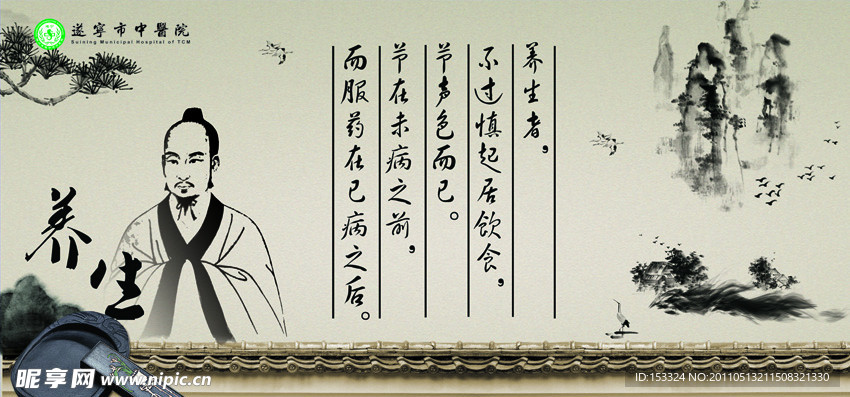 遂寧市中醫院
Suining Municipal Hospital of TCM
养生者，
不过慎起居饮食，
节声色而已。
节在未病之前，
而服药在已病之后。
养生
昵享网 www.nipic.cn
ID:153324 NO:20110513211508321330